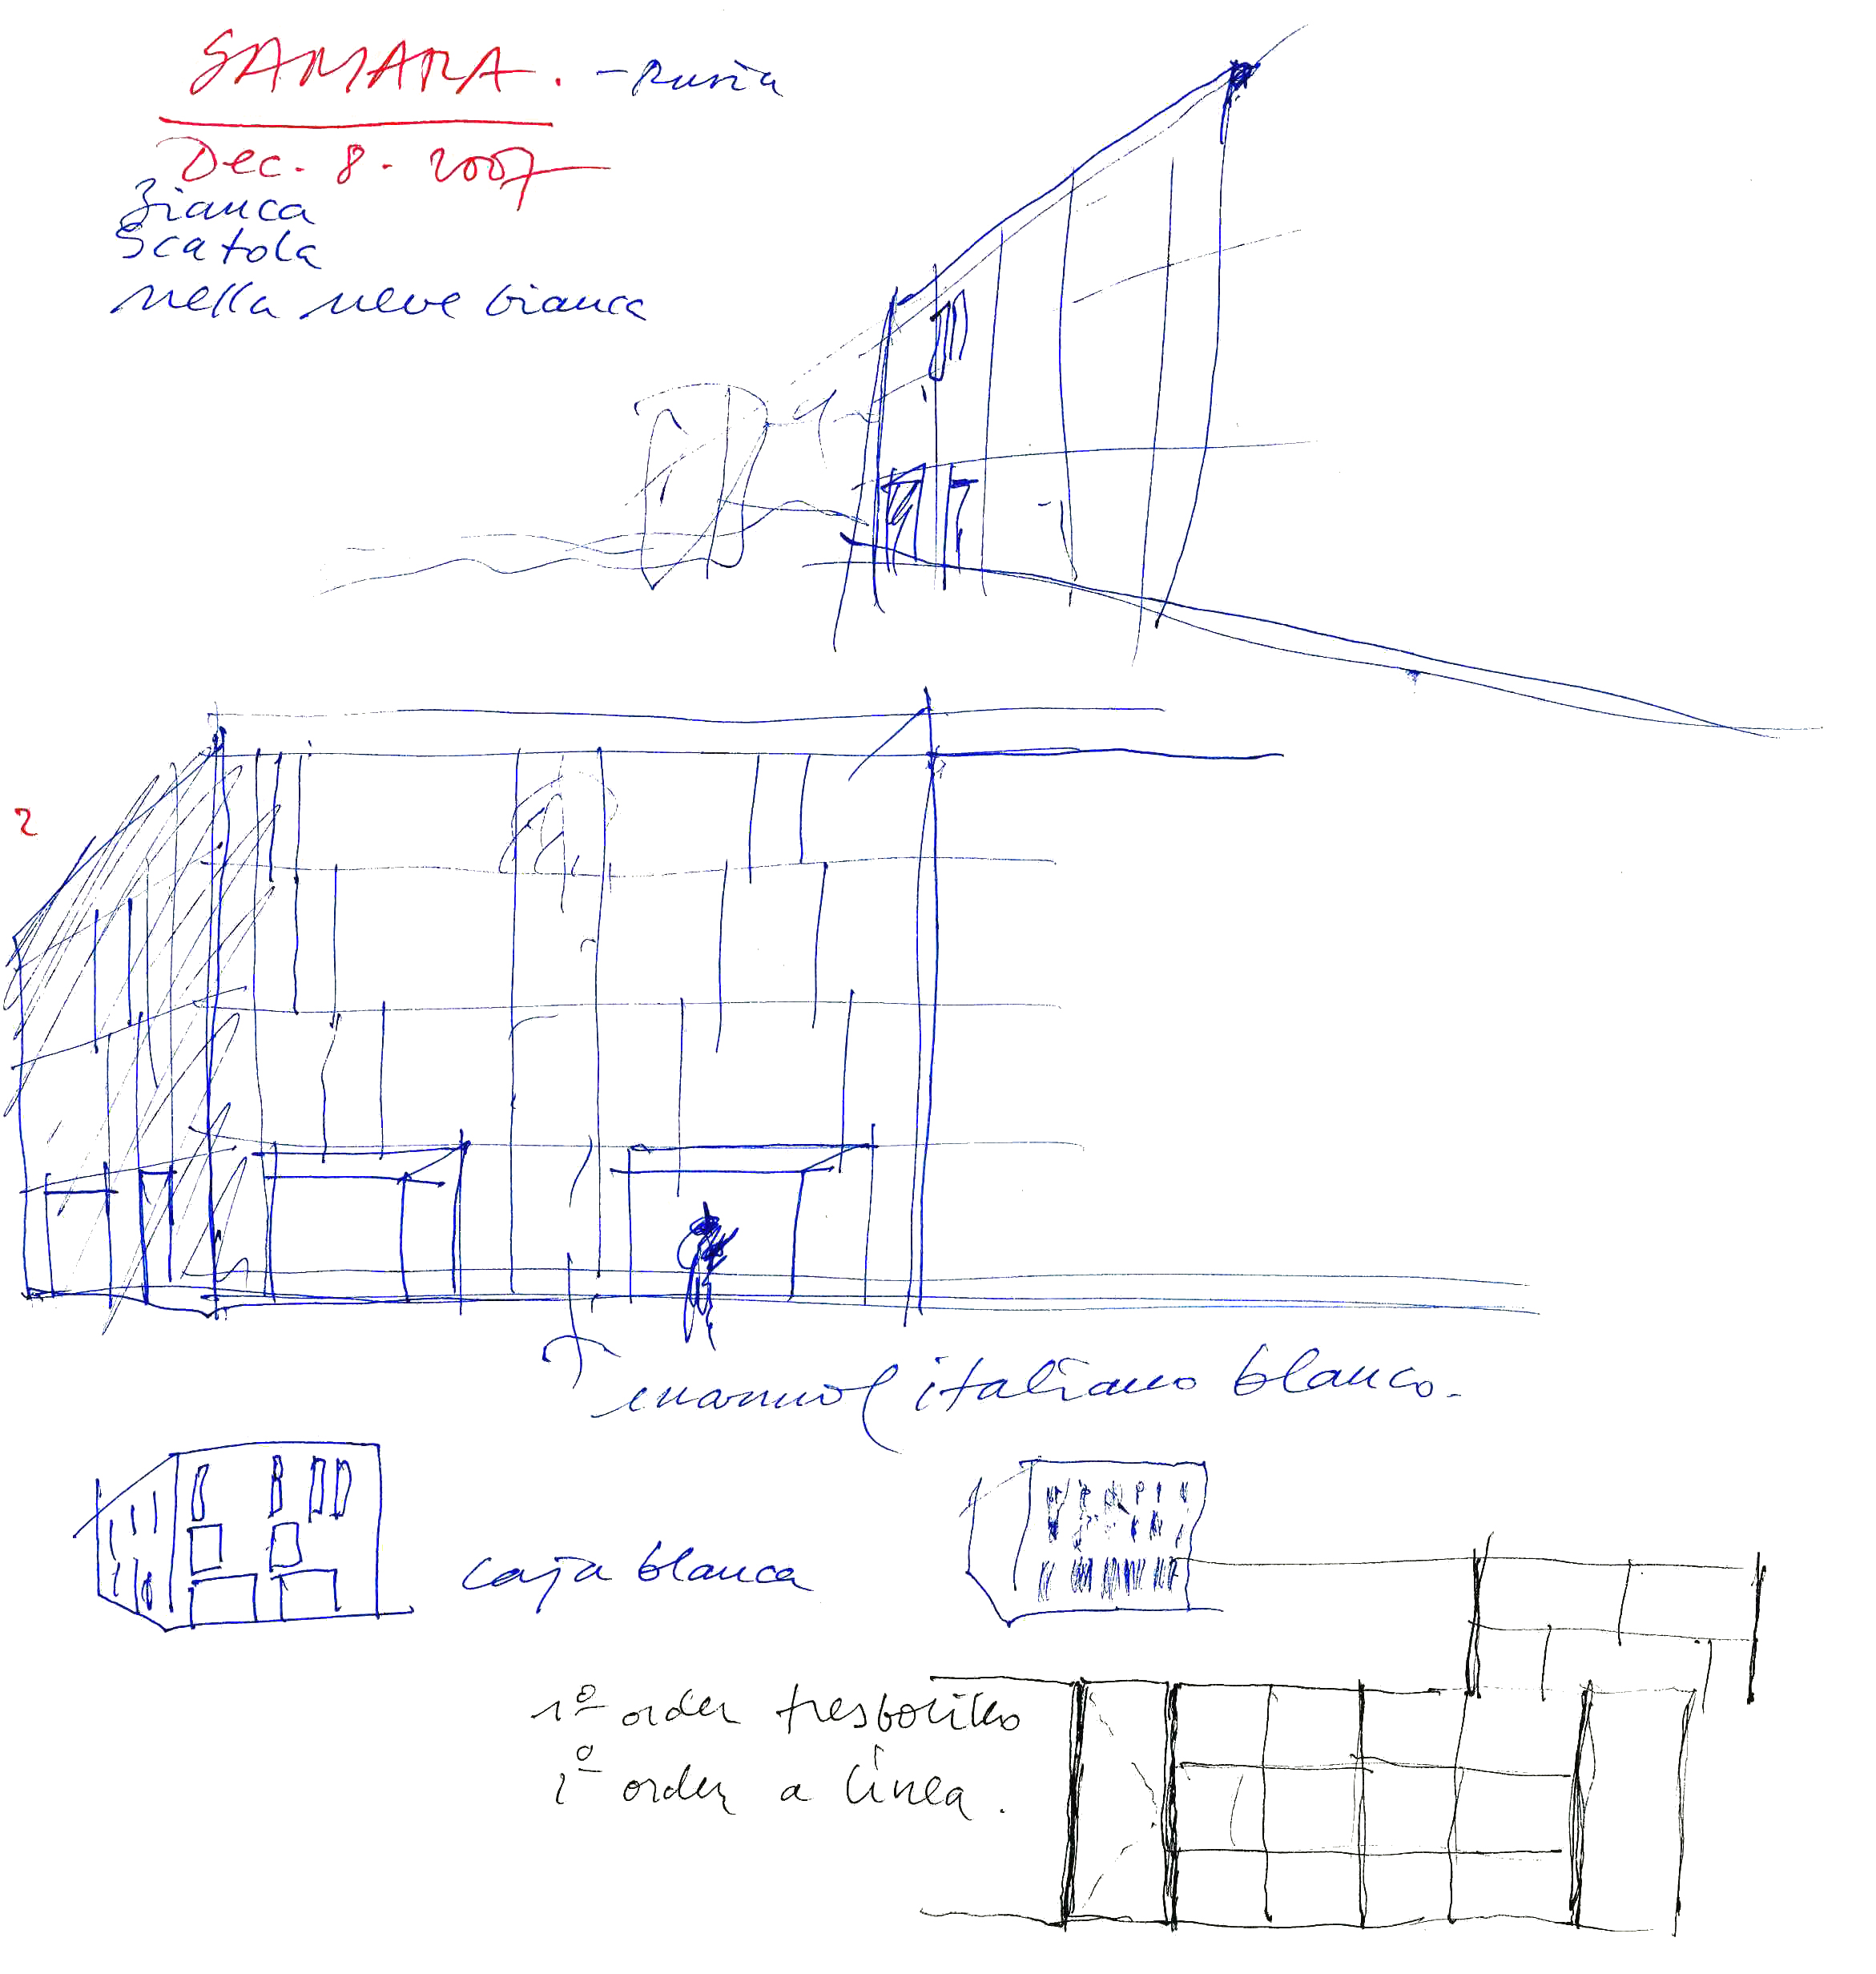 SAMARA. - Rusia
Dec. 8. 2007
Bianca
Scatola
nella neve bianca
2
marmol italiano blanco.
caja blanca
1º orden tresbolillo
2º orden a línea.